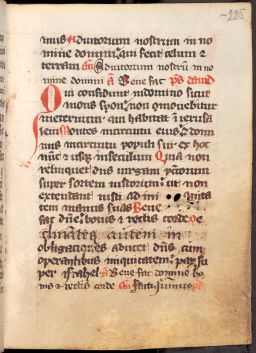 225
mus Adiutorium nostrum in no
mine domini qui fecit celum et
terram an Adiutorium nostrum in no
mine domini A Bene fac ps dauid
Qui confidunt in domino sicut
mons syon non commouebitur
in eternum qui habitat in ierusa
lem Montes in circuitu eius et domi
nus in circuitu populi sui ex hoc
nunc et usque in seculum Quia non
relinquet dominus uirgam peccatorum
super sortem iustorum ut non
extendant iusti ad iniquitatem
manus suas Bene
fac domine bonis et rectis corde De
clinantes autem in
obligationes aducet dominus cum
operantibus iniquitatem pax su
per israhel A Bene fac domine bo
nis et rectis corde an